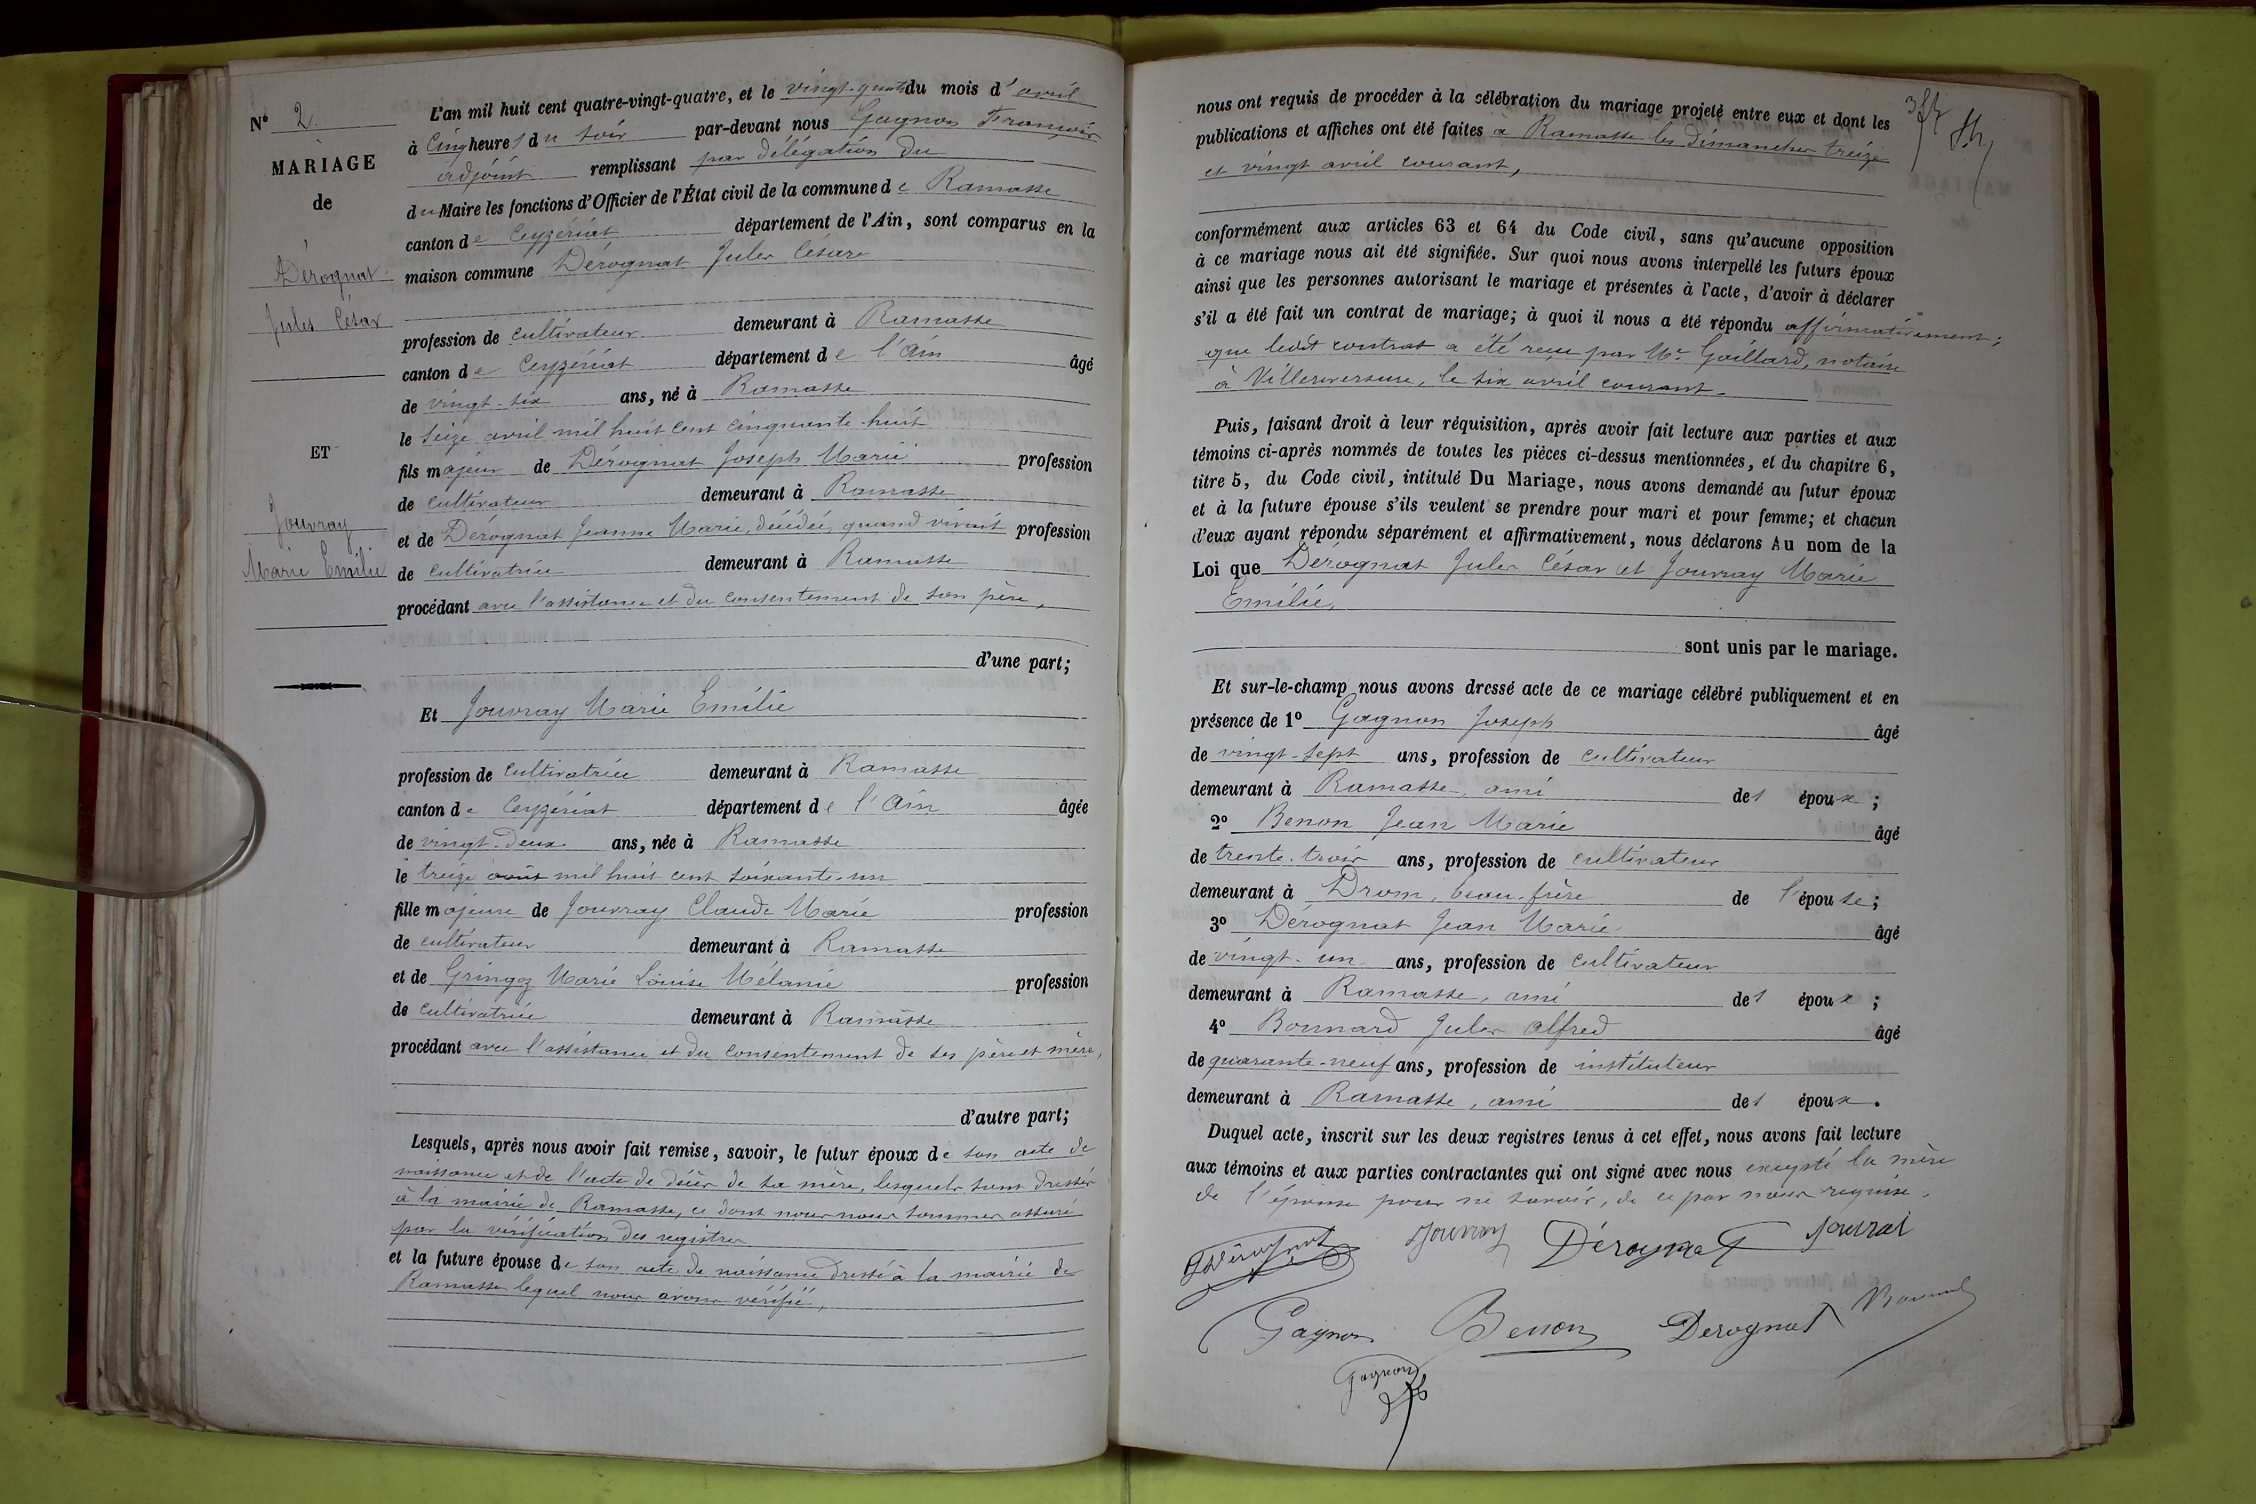 N° 2.
MARIAGE
de
Dérognat
Jules César
ET
Jouvray
Marie Emilie
L'an mil huit cent quatre-vingt-quatre, et le vingt-quatre du mois d'avril
à cinq heures du soir par-devant nous Gagnon François
adjoint remplissant par délégation du
du Maire les fonctions d'Officier de l'État civil de la commune de Ramasse
canton de Ceyzériat département de l'Ain, sont comparus en la
maison commune Dérognat Jules César
profession de cultivateur demeurant à Ramasse
canton de Ceyzériat département de l'Ain âgé
de vingt-six ans, né à Ramasse
le seize avril mil huit cent cinquante-huit
fils majeur de Dérognat Joseph Marie profession
de cultivateur demeurant à Ramasse
et de Dérognat Jeanne Marie, décédée, quand vivait profession
de cultivatrice demeurant à Ramasse
procédant avec l'assistance et du consentement de son père,
d'une part;
Et Jouvray Marie Emilie
profession de cultivatrice demeurant à Ramasse
canton de Ceyzériat département de l'Ain âgée
de vingt-deux ans, née à Ramasse
le treize août mil huit cent soixante-un
fille majeure de Jouvray Claude Marie profession
de cultivateur demeurant à Ramasse
et de Gringoz Marie Louise Mélanie profession
de cultivatrice demeurant à Ramasse
procédant avec l'assistance et du consentement de ses père et mère,
d'autre part;
Lesquels, après nous avoir fait remise, savoir, le futur époux de son acte de
naissance et de l'acte de décès de sa mère, lesquels sont dressés
à la mairie de Ramasse, ce dont nous nous sommes assuré
par la vérification des registres
et la future épouse de son acte de naissance dressé à la mairie de
Ramasse lequel nous avons vérifié,
nous ont requis de procéder à la célébration du mariage projeté entre eux et dont les
publications et affiches ont été faites à Ramasse les dimanches treize
et vingt avril courant,
conformément aux articles 63 et 64 du Code civil, sans qu'aucune opposition
à ce mariage nous ait été signifiée. Sur quoi nous avons interpellé les futurs époux
ainsi que les personnes autorisant le mariage et présentes à l'acte, d'avoir à déclarer
s'il a été fait un contrat de mariage; à quoi il nous a été répondu affirmativement;
que ledit contrat a été reçu par Me Goillard, notaire
à Villereversure, le six avril courant.
Puis, faisant droit à leur réquisition, après avoir fait lecture aux parties et aux
témoins ci-après nommés de toutes les pièces ci-dessus mentionnées, et du chapitre 6,
titre 5, du Code civil, intitulé Du Mariage, nous avons demandé au futur époux
et à la future épouse s'ils veulent se prendre pour mari et pour femme; et chacun
d'eux ayant répondu séparément et affirmativement, nous déclarons Au nom de la
Loi que Dérognat Jules César et Jouvray Marie
Emilie,
sont unis par le mariage.
Et sur-le-champ nous avons dressé acte de ce mariage célébré publiquement et en
présence de 1° Gagnon Joseph âgé
de vingt-sept ans, profession de cultivateur
demeurant à Ramasse, ami des époux;
2° Benon Jean Marie âgé
de trente-trois ans, profession de cultivateur
demeurant à Drom, beau-frère de l'épouse;
3° Dérognat Jean Marie âgé
de vingt-un ans, profession de cultivateur
demeurant à Ramasse, ami des époux;
4° Bonnard Jules Alfred âgé
de quarante-neuf ans, profession de instituteur
demeurant à Ramasse, ami des époux.
Duquel acte, inscrit sur les deux registres tenus à cet effet, nous avons fait lecture
aux témoins et aux parties contractantes qui ont signé avec nous excepté la mère
de l'épouse pour ne savoir, de ce par nous requise.
Dérognat Jouvray Dérognat Jouvrai
Gagnon Benon Derognat Bonnard
Gagnon